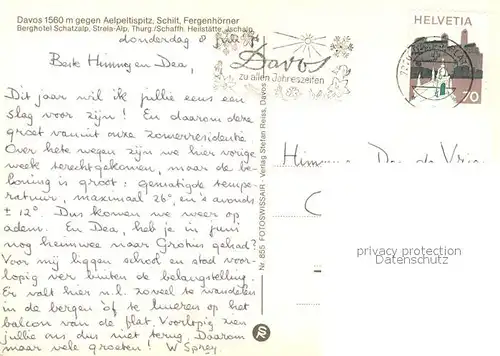 Davos 1560 m gegen Aelpeltispitz, Schilt, Fergenhörner
Berghotel Schatzalp, Strela-Alp, Thurg./Schaffh. Heilstätte, Ischalp
donderdag 8 juli
Beste Himme en Dea,
Dit jaar wil ik jullie eens een
slag voor zijn! En daarom dere
groet vanuit onze zomerresidentie
Over hete wegen zijn we hier vorige
week terechtgekomen, maar de be-
loning is groot: gematigde tempe-
ratuur, maximaal 26°, en 's avonds
± 12°. Dus komen we weer op
adem. En Dea, heb je in juni
nog heimwee naar Grotius gehad?
Voor mij liggen school en stad voor-
lopig ver buiten de belangstelling.
Er valt hier n.l. zoveel te wandelen
in de bergen óf te luieren op het
balcon van de flat. Voorlopig zien
jullie ons dus niet terug. Daarom
maar vele groeten! W Sprey
Davos
zu allen Jahreszeiten
HELVETIA
70
Nr. 855 FOTOSWISSAIR - Verlag Stefan Reiss, Davos
Himme De de Vrie
privacy protection
Datenschutz